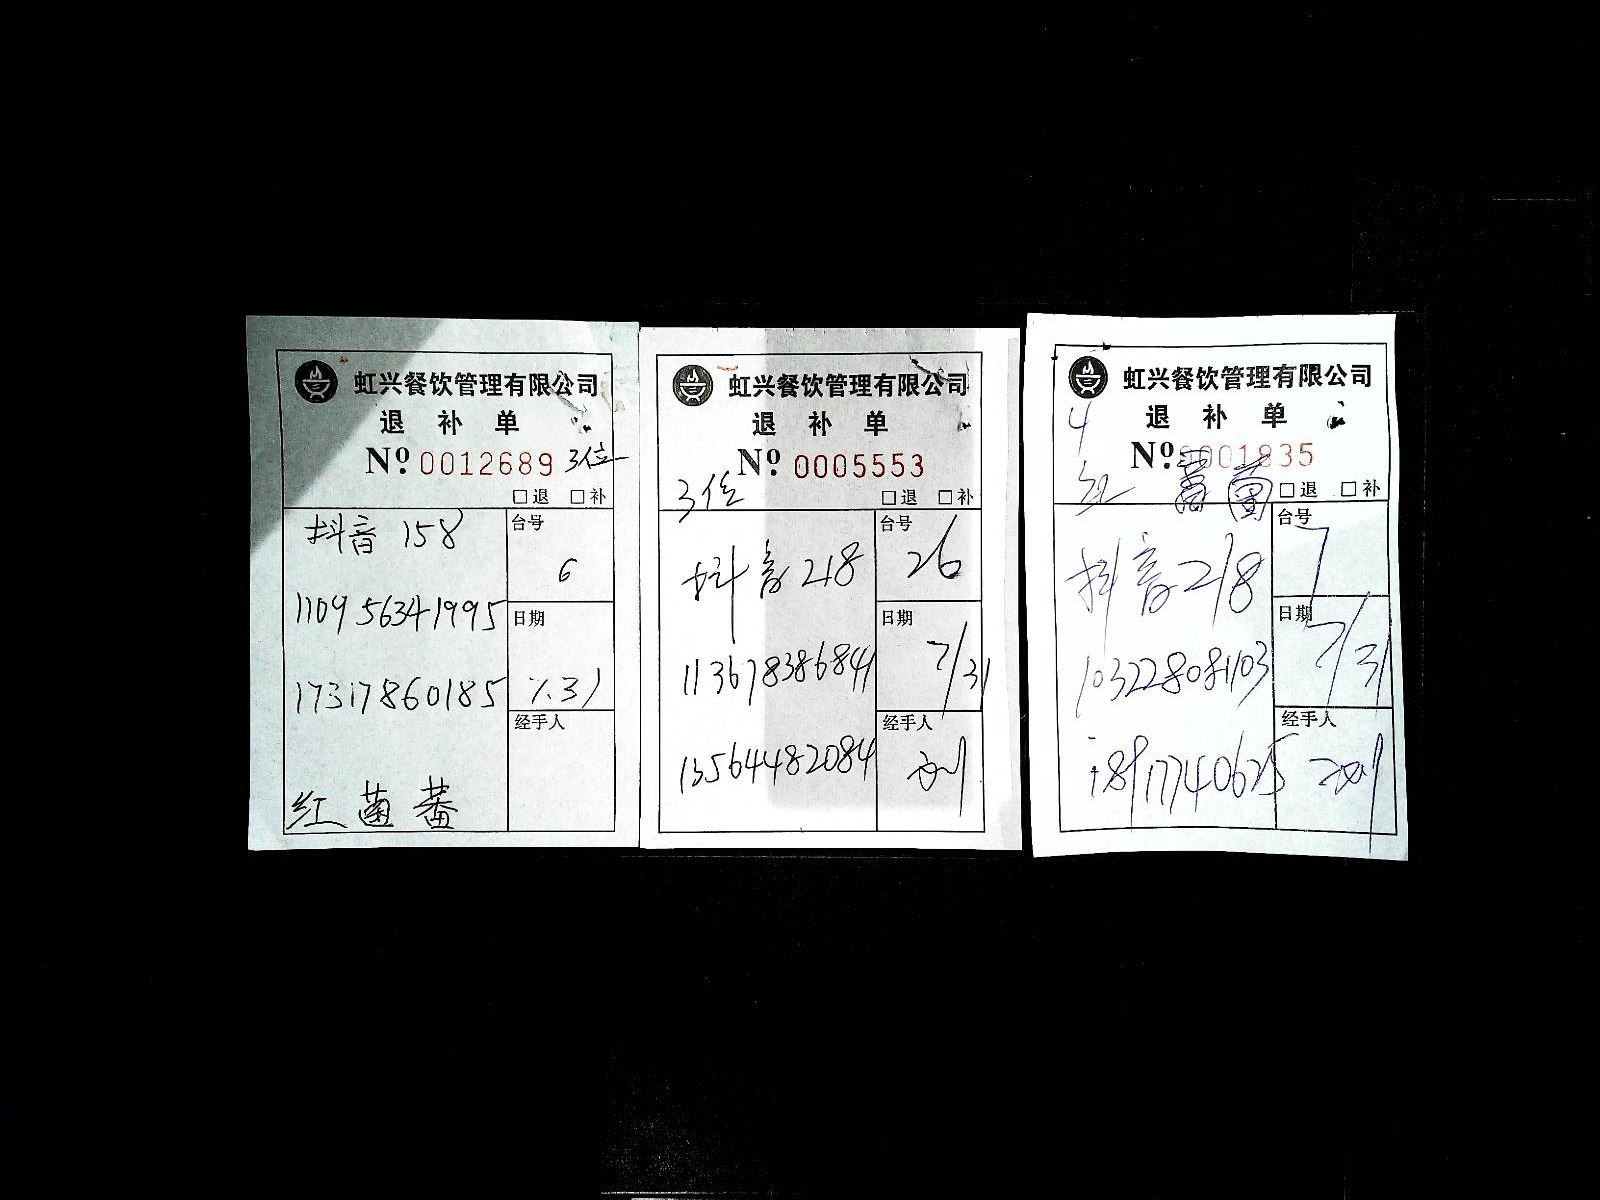 虹兴餐饮管理有限公司
退 补 单
Nº 0012689 3位
□退 □补
抖音 158
台号
6
110956341995
日期
17317860185
7.31
经手人
红 菌 蕃
虹兴餐饮管理有限公司
退 补 单
Nº 0005553
3位
□退 □补
抖音218
台号
26
日期
7/31
113678386841
经手人
13564482084
刘
虹兴餐饮管理有限公司
退 补 单
4
Nº 0001835
红 蕃 菌
□退 □补
台号
7
抖音218
日期
7/31
103228081103
经手人
18917740625
刘